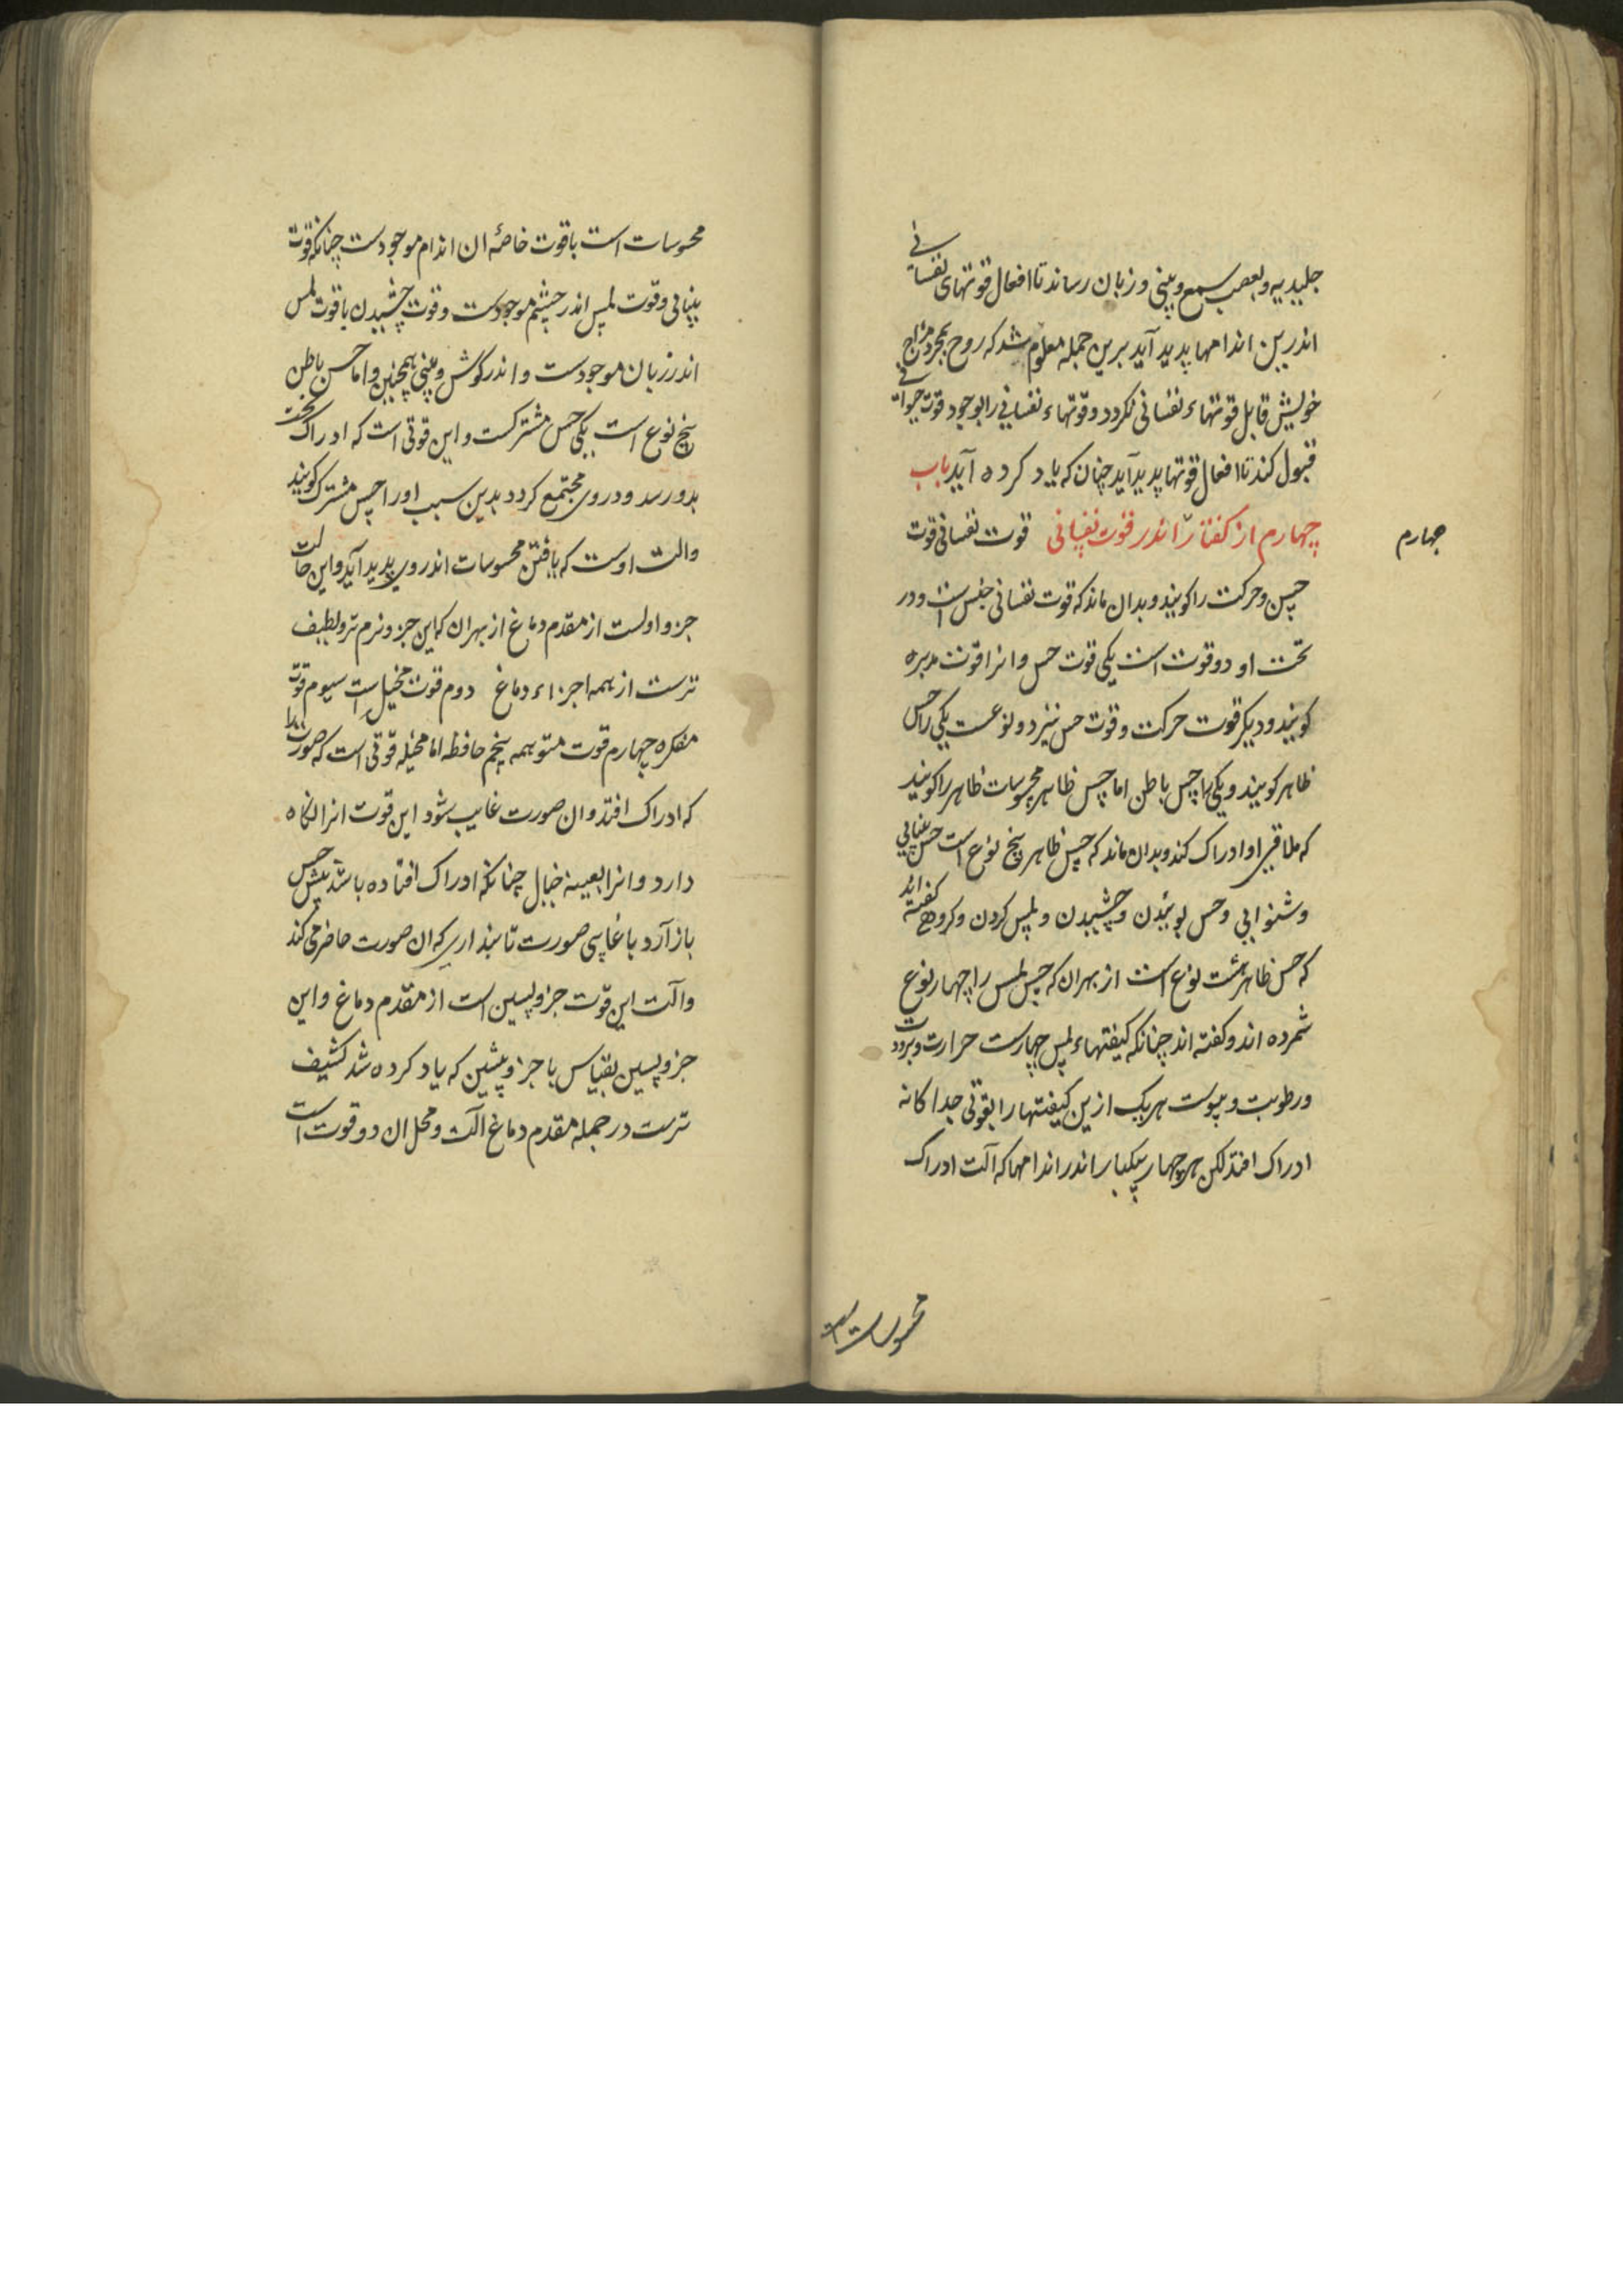 جلیدیه و بعصب سمع و بینی و زبان رساند تا افعال قوتهای نفسانی
اندرین اندامها پدید آید برین جمله معلوم شد که روح بمجرد مزاج
خویش قابل قوتهاء نفسانی نکردد و قوتهاء نفسانی را بوجود قوت حیوانی
قبول کند تا افعال قوتها پدید آید چنان که یاد کرده آید باب
چهارم از کفتار اندر قوت نفسانی قوت نفسانی قوت
چهارم
حس و حرکت را کویند و بدان ماند که قوت نفسانی جنس است و در
تحت او دو قوت است یکی قوت حس و انرا قوت مدبره
کویند و دیکر قوت حرکت و قوت حس نیز دو نوعست یکی را حس
ظاهر کویند و یکی را حس باطن اما حس ظاهر محسوسات ظاهر را کویند
که ملاقی او ادراک کند و بدان ماند که حس ظاهر پنج نوع است حس بینایی
و شنوایی و حس بوئیدن و چشیدن و لمس کردن و کروهی کفته اند
که حس ظاهر هشت نوع است از بهر ان که حس لمس را چهار نوع
شمرده اند و کفته اند چنانکه کیفتهاء لمس چهارست حرارت و برودت
و رطوبت و یبوست هر یک ازین کیفتها را بقوتی جداکانه
ادراک افتد لکن هر چهار بیکبار اندر اندامها که آلت ادراک
محسوسات است
محسوسات است با قوت خاصهٔ ان اندام موجودست چنانکه قوت
بینائی و قوت لمس اندر چشم موجودست و قوت چشیدن با قوت لمس
اندر زبان موجودست و اندر کوش و بینی همچنین و اما حس باطن
پنج نوع است یکی حس مشترکست و این قوتی است که ادراک نخست
بدو رسد و در وی مجتمع کردد بدین سبب او را حس مشترک کویند
والت اوست که یافتن محسوسات اندر وی پدید آید و این حالت
جزو اولست از مقدم دماغ از بهر ان که این جزو نرم تر و لطیف
ترست از همه اجزاء دماغ دوم قوت مخیل است سیوم قوت
مفکره چهارم قوت متوهمه پنجم حافظه اما مخیله قوتی است که صورتها را
که ادراک افتد و ان صورت غایب شود این قوت انرا نکاه
دارد و انرا بعینه خیال چنانکه ادراک افتاده باشد پیش حس
باز آرد با غایبی صورت تا پنداری که ان صورت حاضر می کند
و آلت این قوت جزو پسین است از مقدم دماغ و این
جزو پسین بقیاس با جزو پیشین که یاد کرده شد کثیف
ترست در جمله مقدم دماغ آلت و محل ان دو قوت است